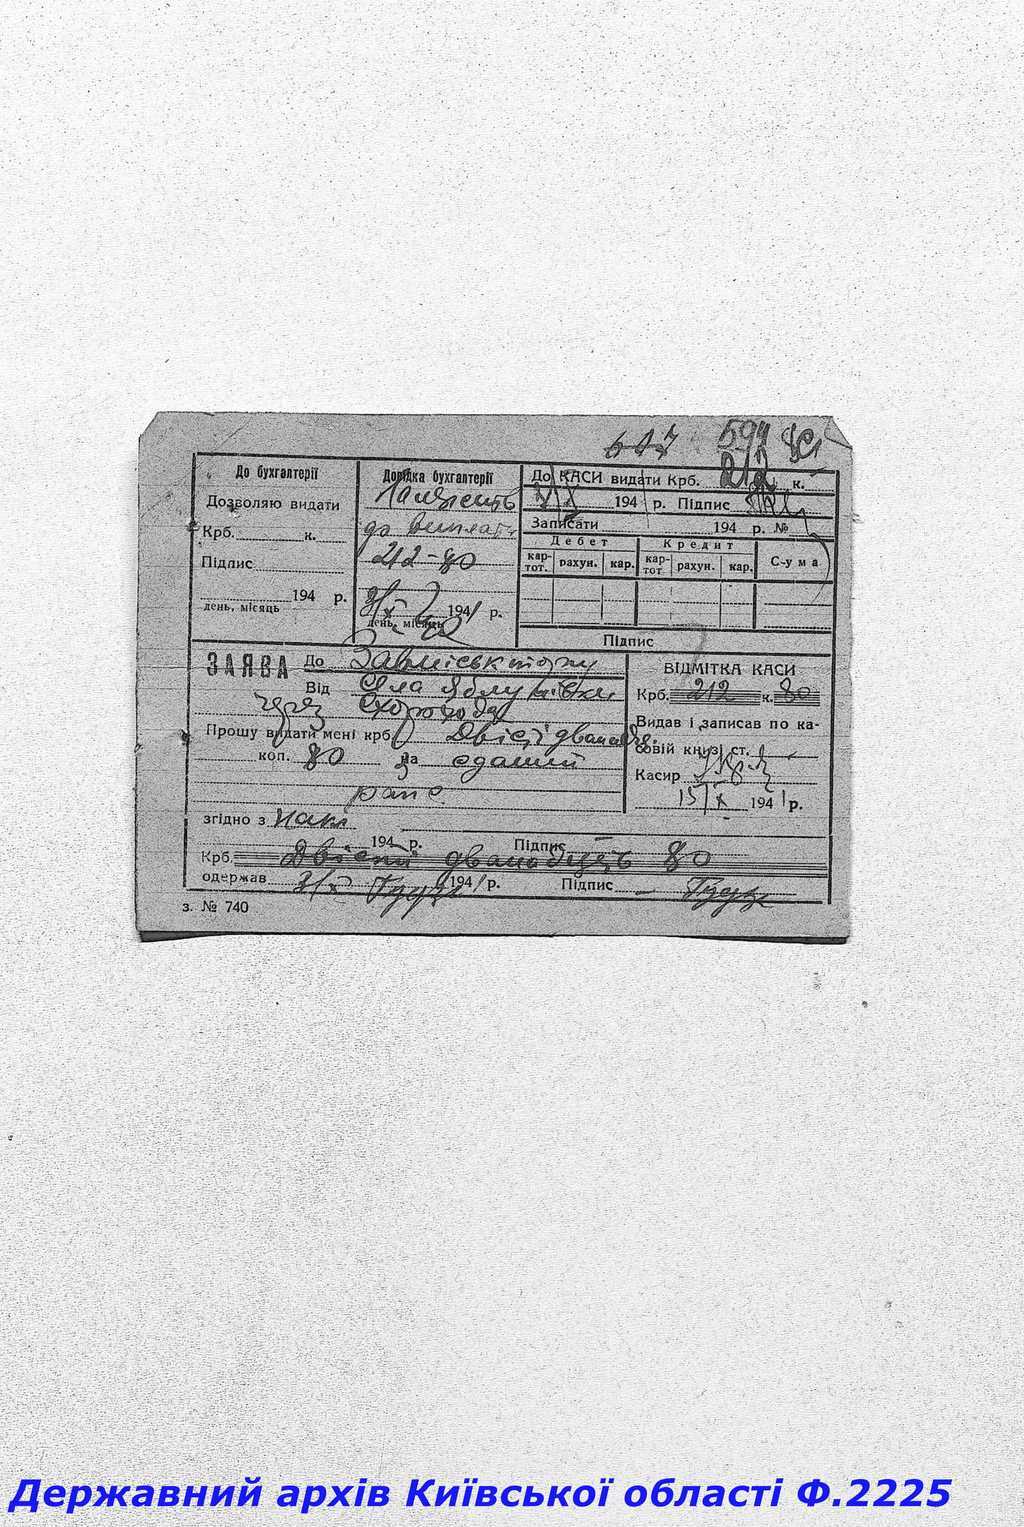 594
До бухгалтерії
Дозволяю видати
Крб. к.
Підпис
194 р.
день, місяць
Довідка бухгалтерії
Належить
до виплати
212-80
3/X 1941 р.
день, місяць
До КАСИ видати Крб. 212 к.
194 р. Підпис
Записати 194 р. №
Дебет Кредит С-ума
кар-тот. рахун. кар. кар-тот рахун. кар.
Підпис
ЗАЯВА До
Від села Яблунівки
через Скорохода
Прошу видати мені крб. Двісті дванадц.
коп. 80 за зданий
рапс
згідно з накл
194 р. Підпис
Крб. Двісті дванадцять 80
одержав 3/X 1941 р. Підпис
ВІДМІТКА КАСИ
Крб. 212 к. 80
Видав і записав по ка-
совій книзі ст.
Касир
15/X 1941 р.
з. № 740
Державний архів Київської області Ф.2225